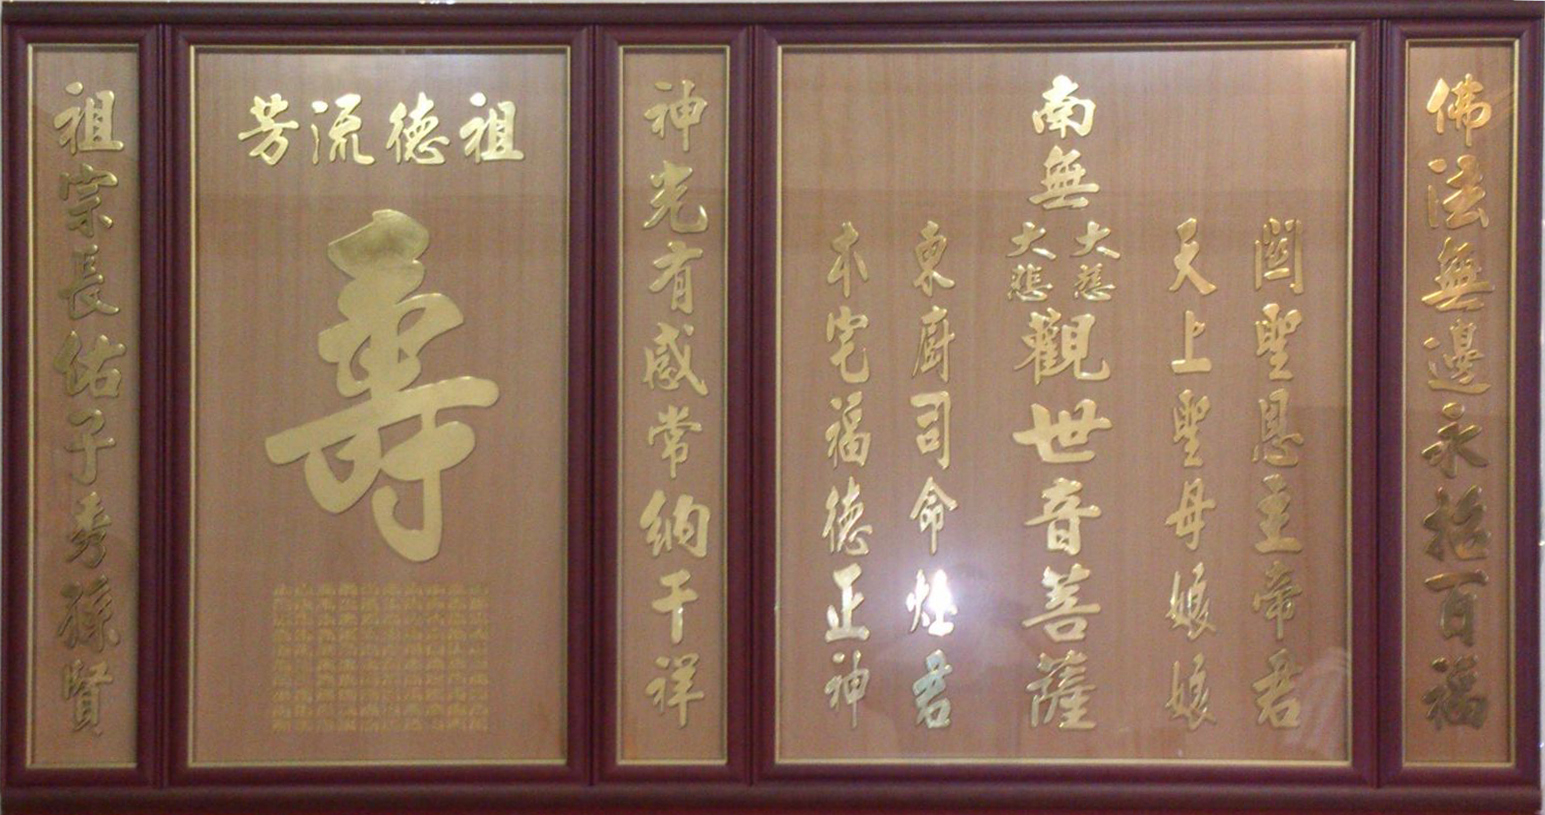 佛法無邊永招百福
關聖恩主帝君
天上聖母娘娘
南無
大慈
大悲
觀世音菩薩
東廚司命灶君
本宅福德正神
神光有感常納千祥
祖德流芳
壽
祖宗長佑子秀孫賢